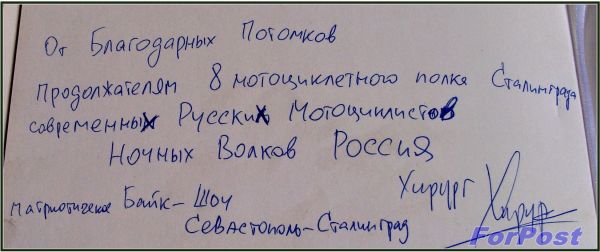 От Благодарных Потомков
Продолжателям 8 мотоциклетного полка Сталинграда
современных Русских Мотоциклистов
Ночных Волков Россия
Хирург
Патриотическое Байк-Шоу
Севастополь-Сталинград
ForPost